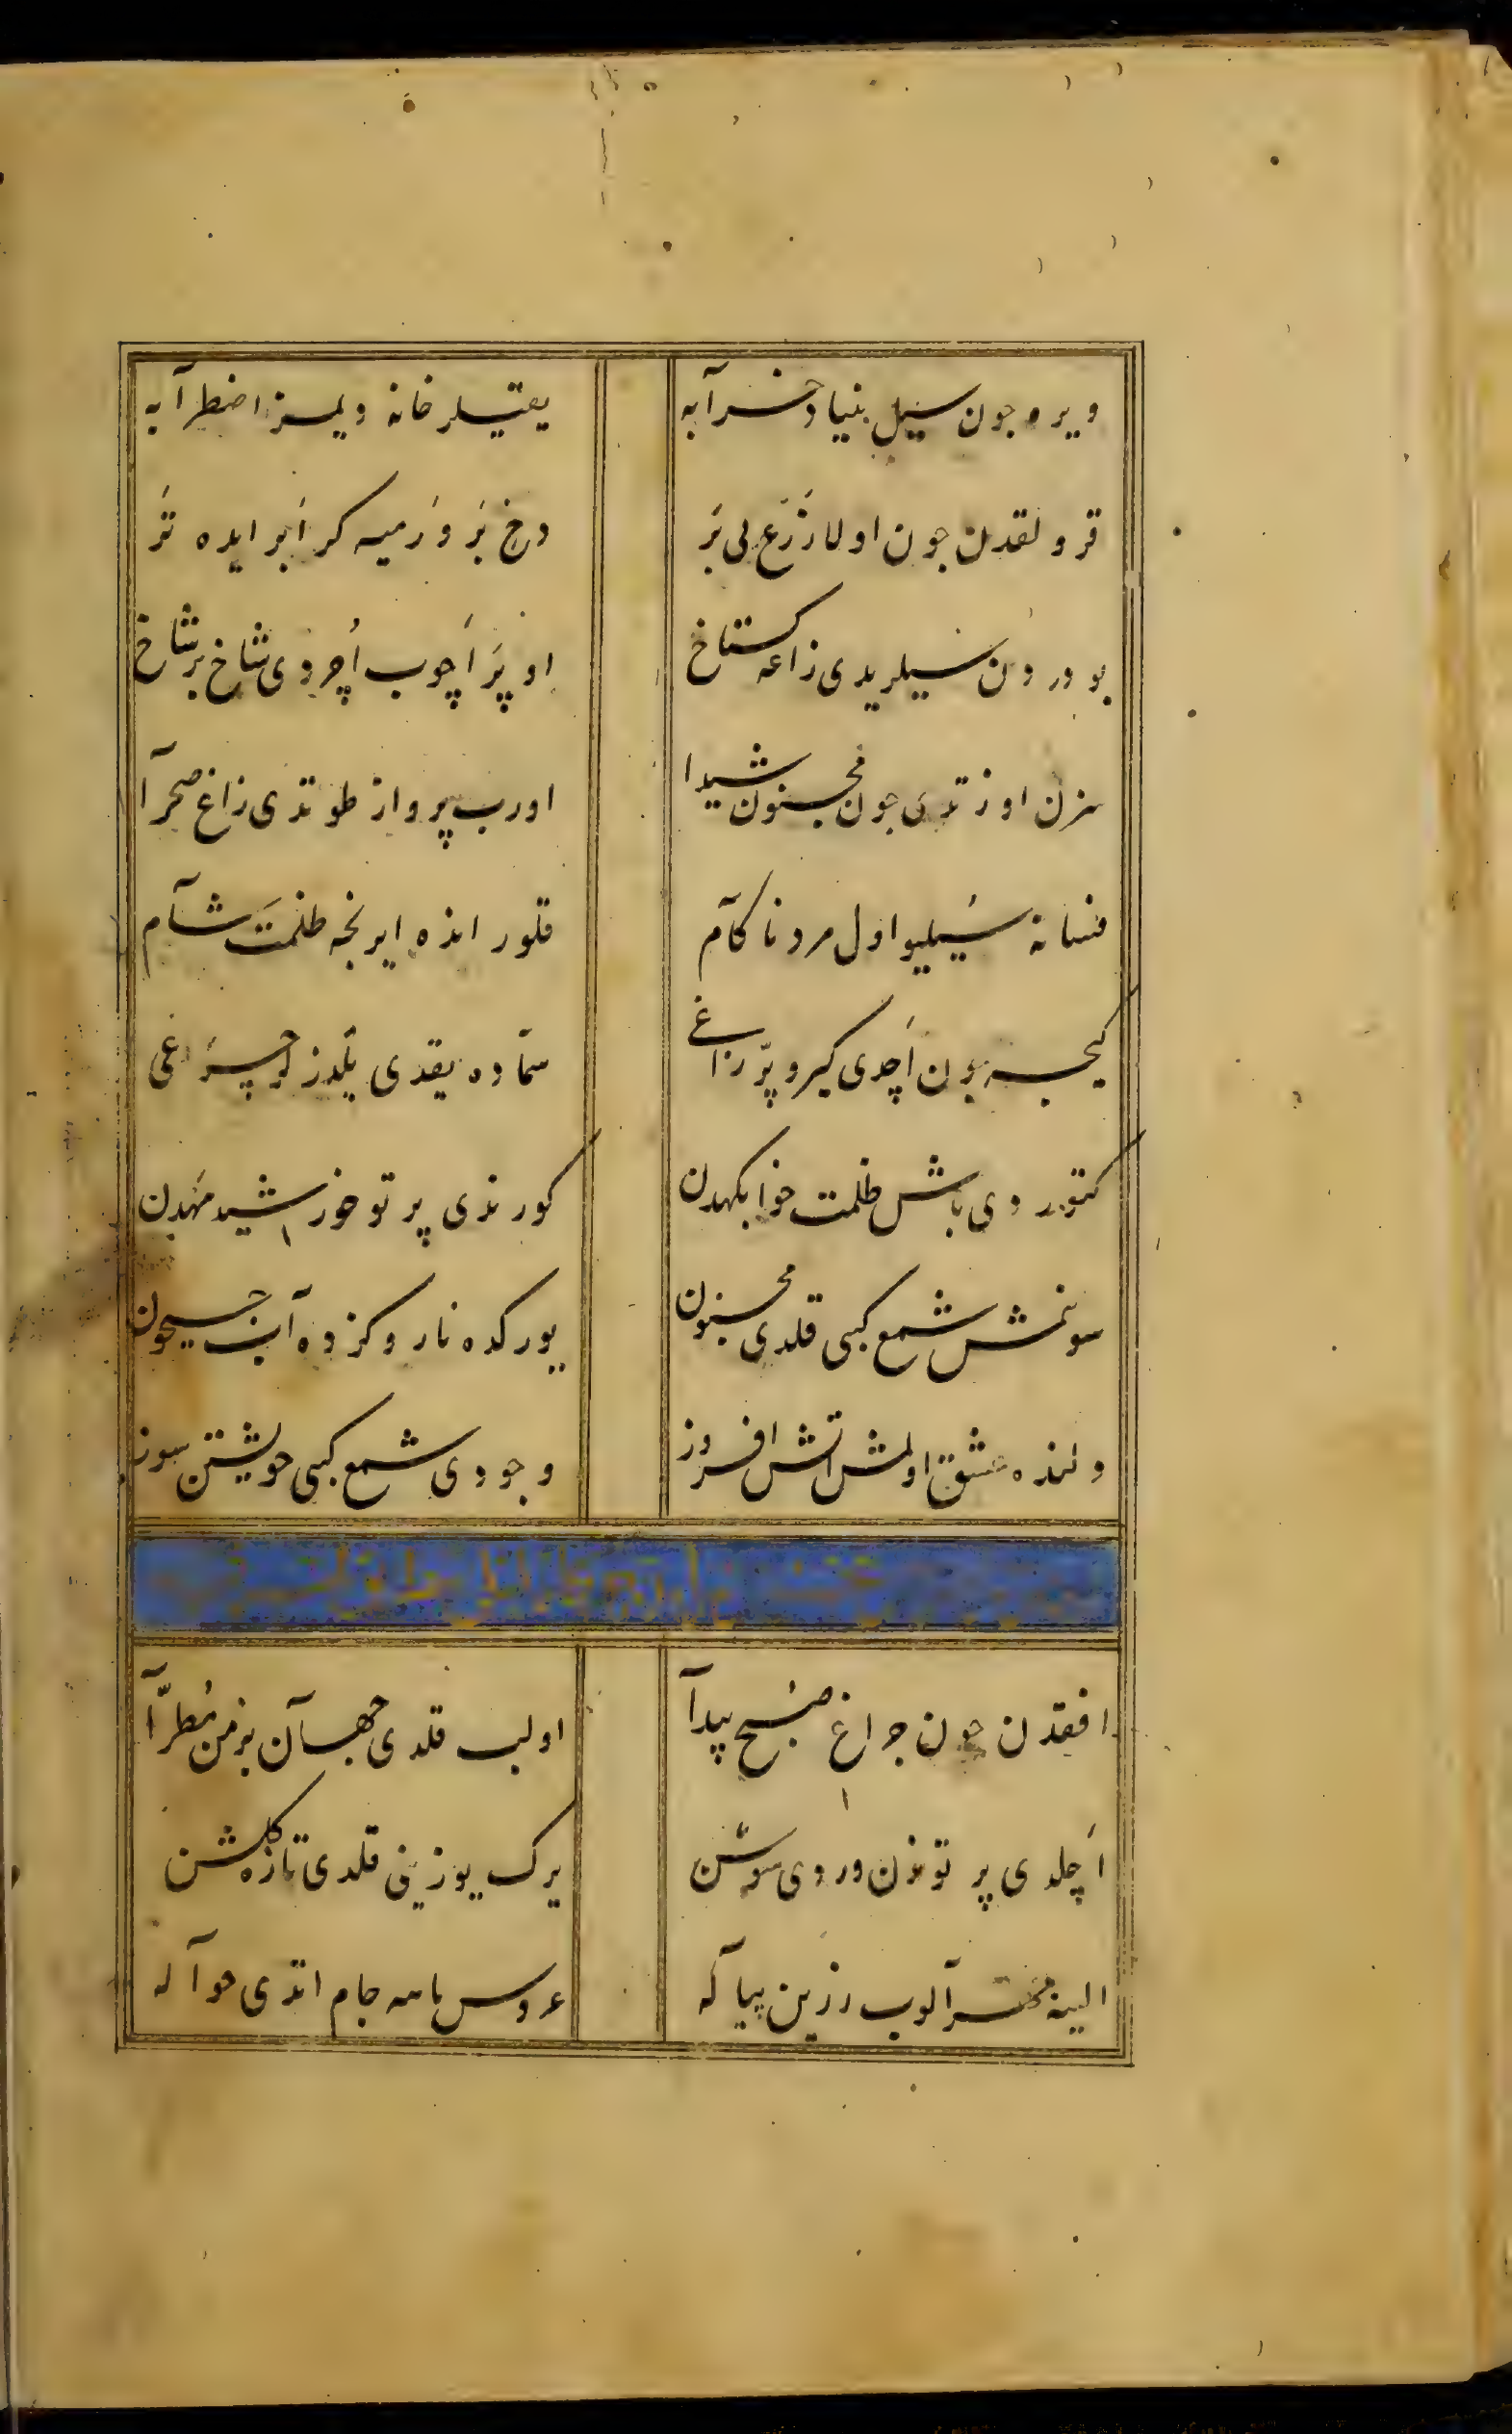 ویره چون سیل بنیاد خرآبه یقیلر خانه ویلمز اضطرآبه
قرولقدن چون اولا زَرَع لی بَر دخ بَر وَرمیه کر اَبر ایده تَر
بو وردن سیلریدی زاغه کستاخ او پَر اَچوب اُچردی شاخ بر شاخ
سزن اوزتدی چون مجنون شیدا اورب پرواز طوتدی زاغ صحرآ
فسانه سُیلیو اول مرد ناکآم قلور انده ایرنجه ظلمتَ شآم
کیجه بون اَچدی کیرو پرّ زاغ سمّاده یقدی یلدزلر چراغی
کتوردی باش ظلمت خوابکهدن کورندی پرتو خورشید مَهدن
سوینمش شمع کبی قلدی مجنون یورکده نار و کزده آب جیحون
ولنده عشق اولمش اتش افروز وجودی شمع کبی خویشتن سوز
افقدن چون چراغ صُبح پیدآ اولب قلدی جهآن بزمن مُطرّآ
اَچلدی پرتوندن وردی سوسَن یرک یوزینی قلدی تازه کلشن
الینه مختر آلوب زرین پیآله عروس بامه جام اتدی حوآله